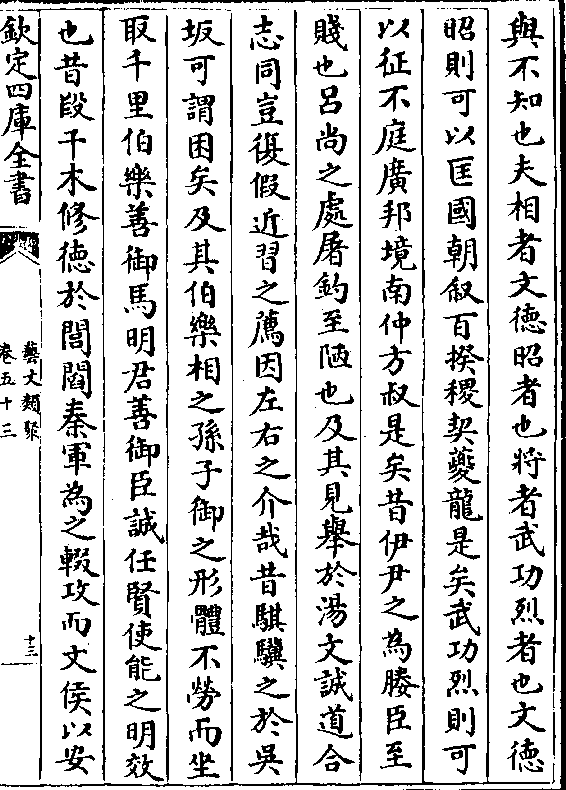 與不知也夫相者文德昭者也將者武功烈者也文德
昭則可以匡國朝叙百揆稷契夔龍是矣武功烈則可
以征不庭廣邦境南仲方叔是矣昔伊尹之為媵臣至
賤也呂尚之處屠釣至陋也及其見舉於湯文誠道合
志同豈復假近習之薦因左右之介哉昔騏驥之於吳
坂可謂困矣及其伯樂相之孫子御之形體不勞而坐
取千里伯樂善御馬明君善御臣誠任賢使能之明效
也昔段干木修德於閭閻秦軍為之輟攻而文侯以安
欽定四庫全書
藝文類聚
卷五十三
十三